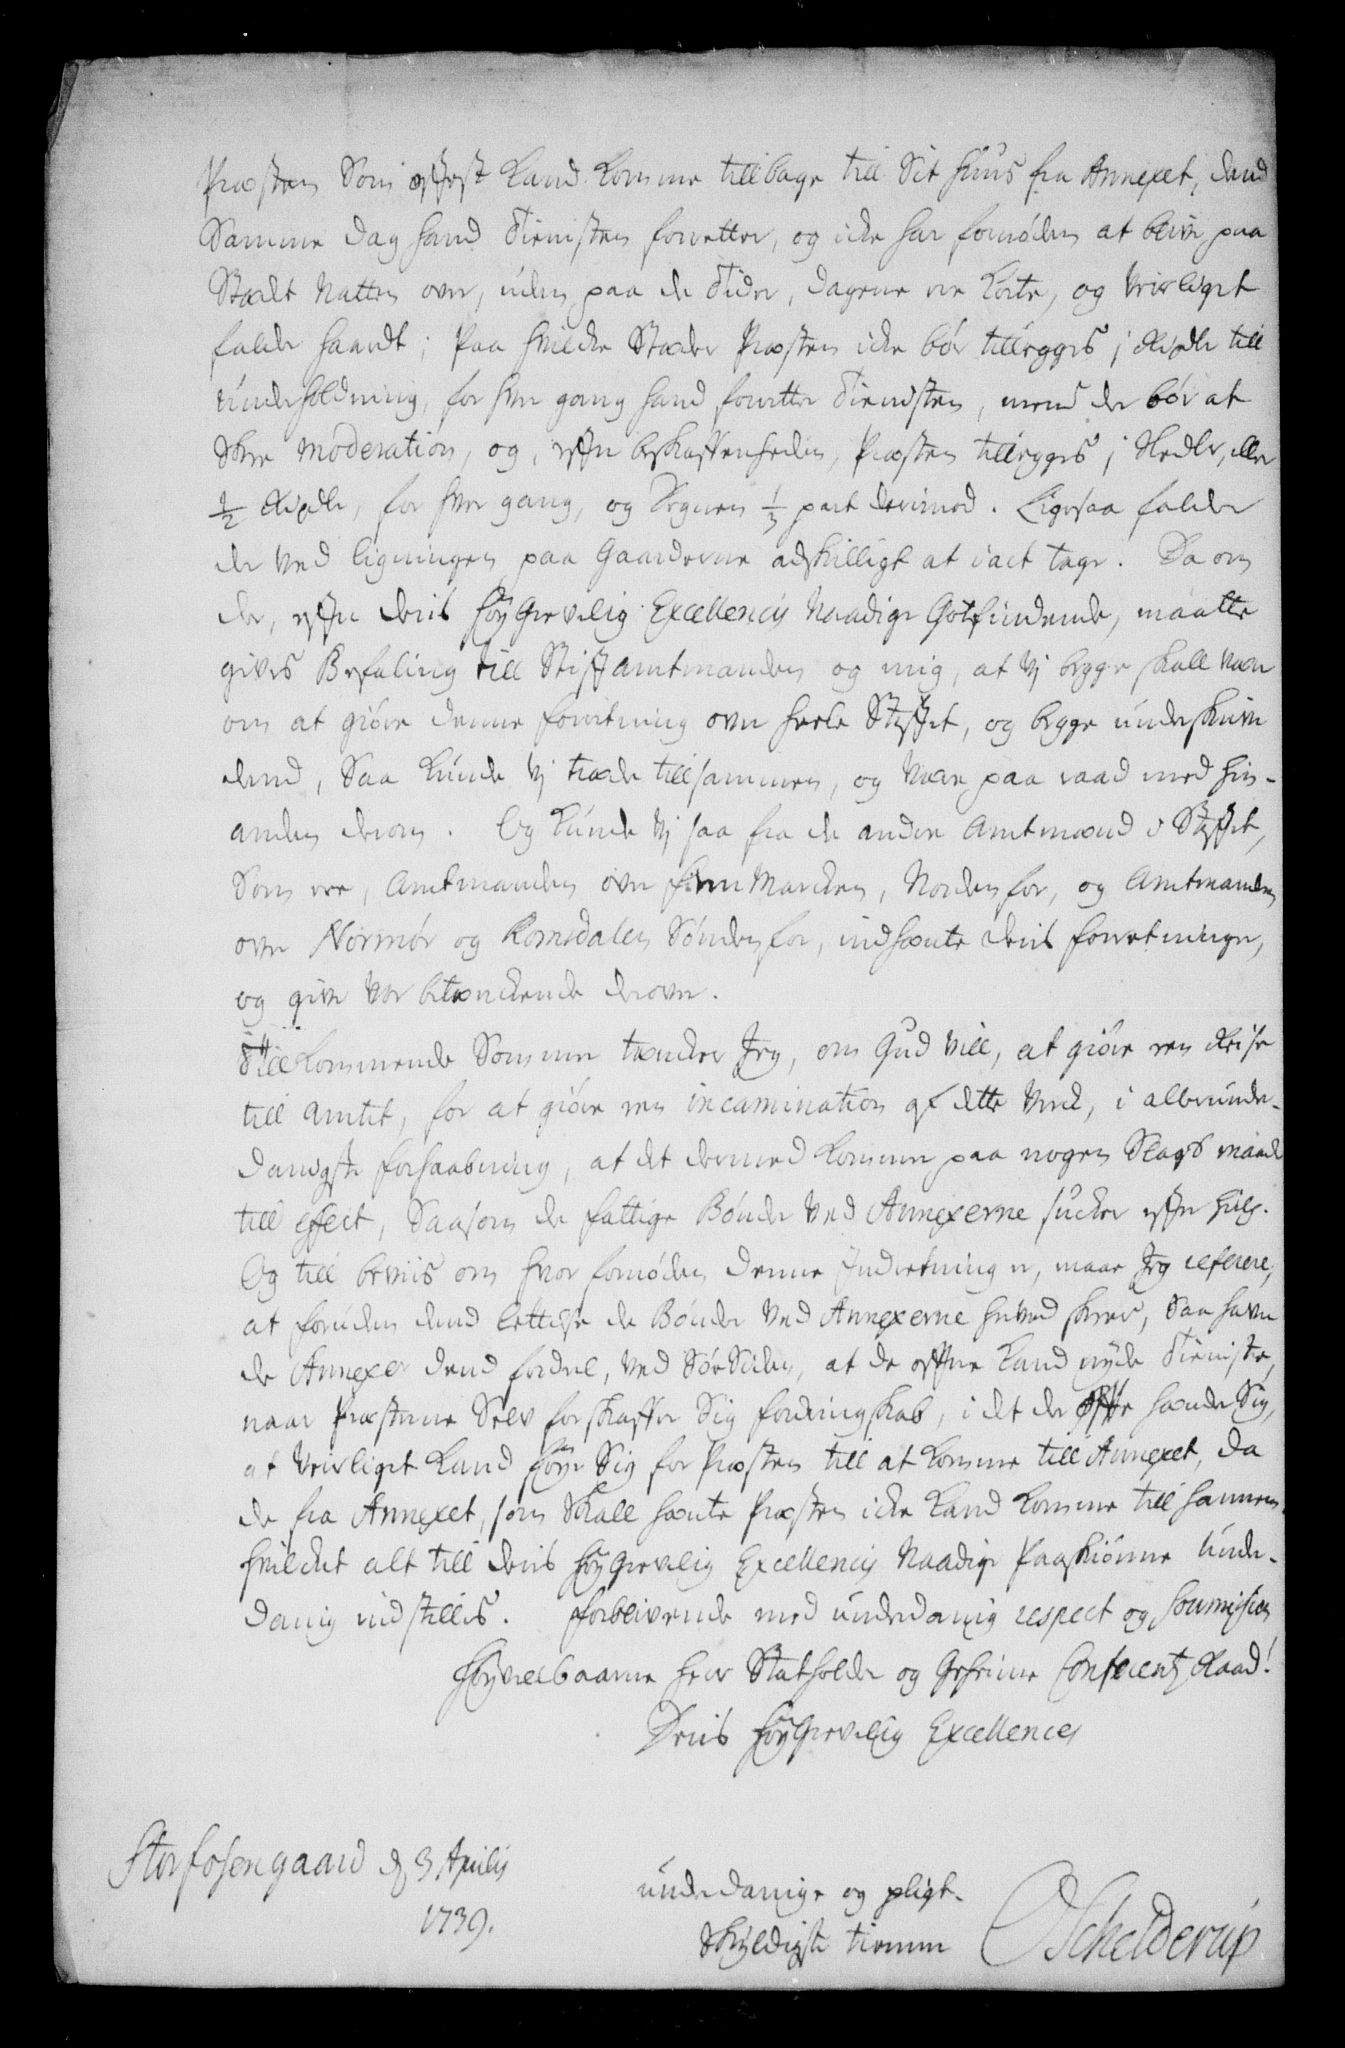 Præsten Som oftest Kand Komme tilbage till Sit Huus fra Annexet, dend
Samme dag hand Tienisten forretter, og icke har fornøden at blive paa
Stædt Natten over, uden paa de Tider, dagene ere Korte, og Veirliget
falder haardt; Paa hvilcke Stæder Præsten icke bør tillegges j Rixdlr till
Underholdning, for hver gang hand forretter Tienisten, mend der bør at
Skee moderation, og, efter beskaffenheden, Præsten tillegges j Slædlr, eller
½ Rixdlr, for hver gang, og Degnen ⅓ part derimod. Ligesaa falder
der ved ligningen paa Gaarderne adskilligt at i act tage. Da om
der, efter deris HøyGrevelig Excellencis Naadige Gotfindende, maatte
gives Befaling till Stiftamtmanden og mig, at Vj begge skall være
om at giøre denne forretning over heele Stiftet, og begge underskrive
dend, Saa Kunde Vj træde tillsammen, og være paa raad med hin-
anden derom. Og Kunde Vj saa fra de andre Amtmænd i Stiftet,
Som ere, Amtmanden over Finmarcken, Norden for, og Amtmanden
over Normør og Romsdalen Sønden for, indhænte deris forretninger,
og give vor betænckende derover.
Tillkommende Sommer tæncker Jeg, om Gud vill, at giøre een Reise
till amtet, for at giøre een incamination af dette Verck, i allerunder-
danigste forhaabning, at det dermed Kommer paa nogen Slags maade
till effect, Saasom de fattige Bønder ved Annexerne sucker efter hielp.
Og till beviis om hvor fornøden denne Indretning er, maae Jeg referere,
at foruden dend lettelse de Bønder ved Annexerne herved skeer, Saa have
de Annexer dend fordeel, ved Søe Siden, at de oftere Kand nyde Tieniste,
naar Præsterne Selv forskaffer Sig fordringskab, i det der ofte hænder Sig,
at Veirliget Kand føye Sig for Præsten till at Komme till Annexet, da
de fra Annexet, som Skall hænte Præsten icke Kand Komme till hannem.
Hvilcket alt till deris HøyGrevelig Excellencis Naadige Paaskiønne Under-
danig indstilles. Forblivende med underdanig respect og soumission
Høyvelbaarne Herr Statholder og Geheime Conferentz Raad!
Deris HøyGrevelig Excellences
Storfosengaard d 3 Aprilis
1739.
underdanige og pligt-
skyldigste tienere
O Schelderup